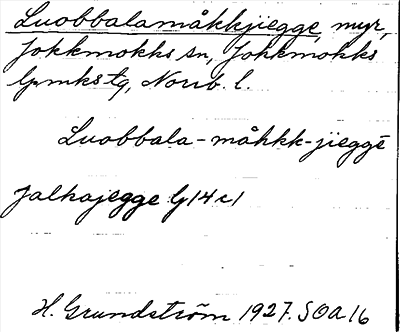 Luobbalamåkkjiegge, myr,
Jokkmokks sn, Jokkmokks
lpmks tg, Norrb. l.
Luobbala-måhkk-jieggē
Jalkajegge G14c1
H. Grundström 1927. SOA 16